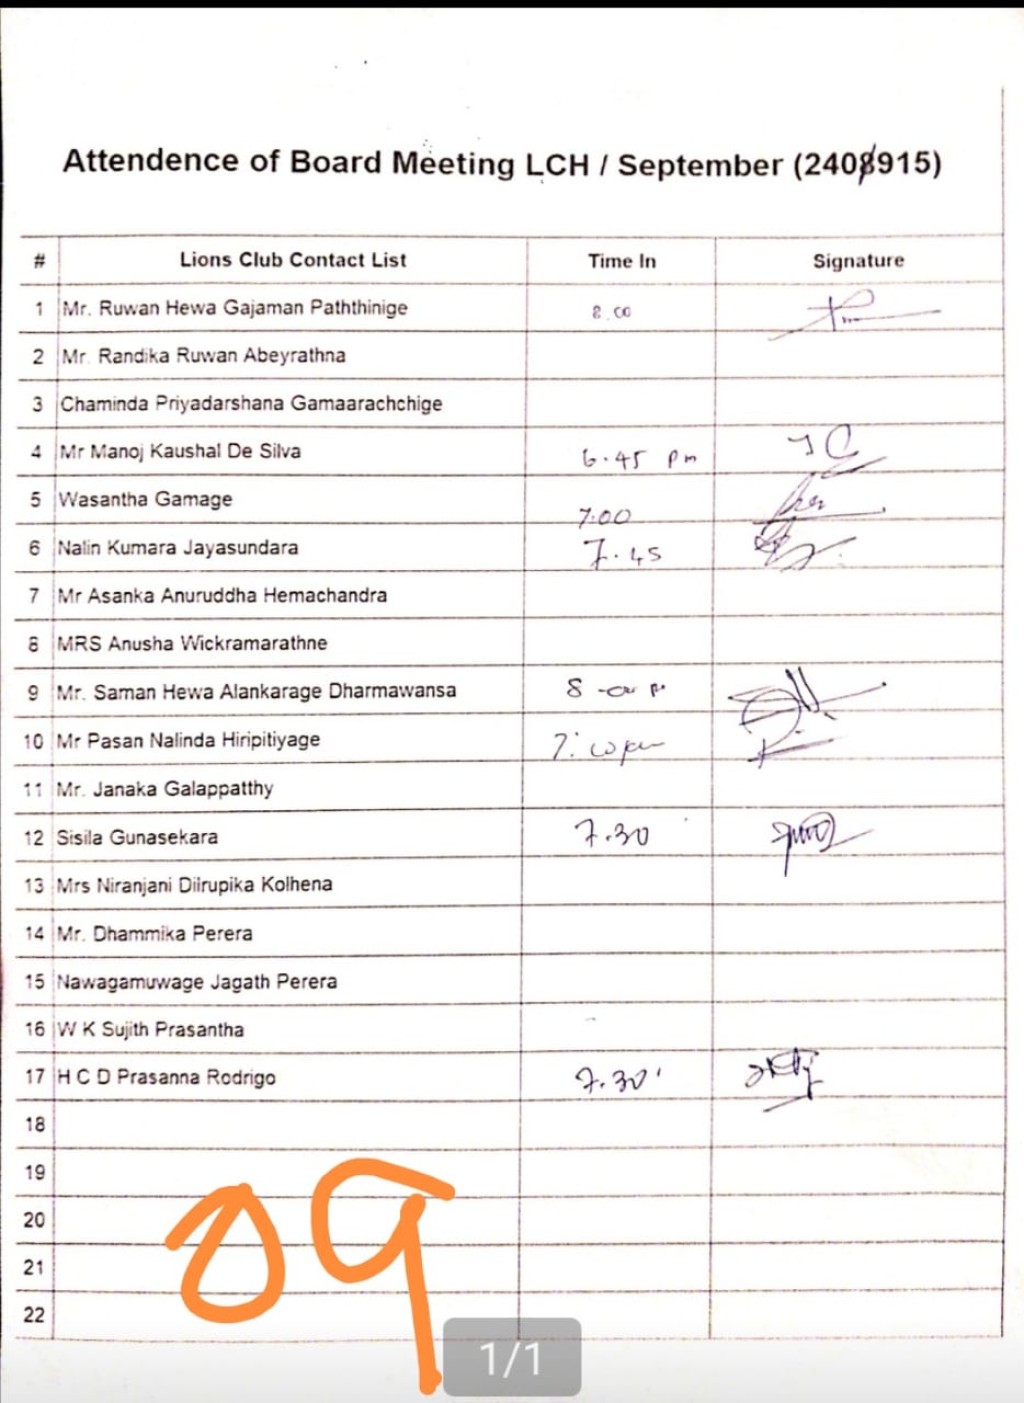 Attendence of Board Meeting LCH / September (2408915)
# Lions Club Contact List Time In Signature
1 Mr. Ruwan Hewa Gajaman Paththinige 8.00
2 Mr. Randika Ruwan Abeyrathna
3 Chaminda Priyadarshana Gamaarachchige
4 Mr Manoj Kaushal De Silva 6.45 pm
5 Wasantha Gamage 7.00
6 Nalin Kumara Jayasundara 7.45
7 Mr Asanka Anuruddha Hemachandra
8 MRS Anusha Wickramarathne
9 Mr. Saman Hewa Alankarage Dharmawansa 8
10 Mr Pasan Nalinda Hiripitiyage
11 Mr. Janaka Galappatthy
12 Sisila Gunasekara 7.30
13 Mrs Niranjani Dilrupika Kolhena
14 Mr. Dhammika Perera
15 Nawagamuwage Jagath Perera
16 W K Sujith Prasantha
17 H C D Prasanna Rodrigo 7.30
18
19
20
21
22
09
1/1